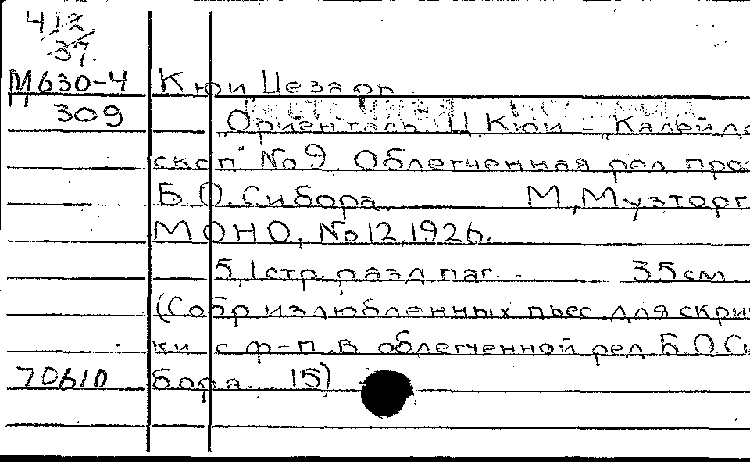 412
37.
М630-4 Кюи Цезарь
309 „Ориенталь" Ц Кюи – „Калейдо
скоп" №9. Облегченная ред проф
Б О. Сибора М, Музторг
МОНО, №12, 1926.
5, 1 стр. разд паг. 35 см
(Собр излюбленных пьес для скрип
ки с ф-п. в облегченной ред. Б.О.Си
70610 бора 15)